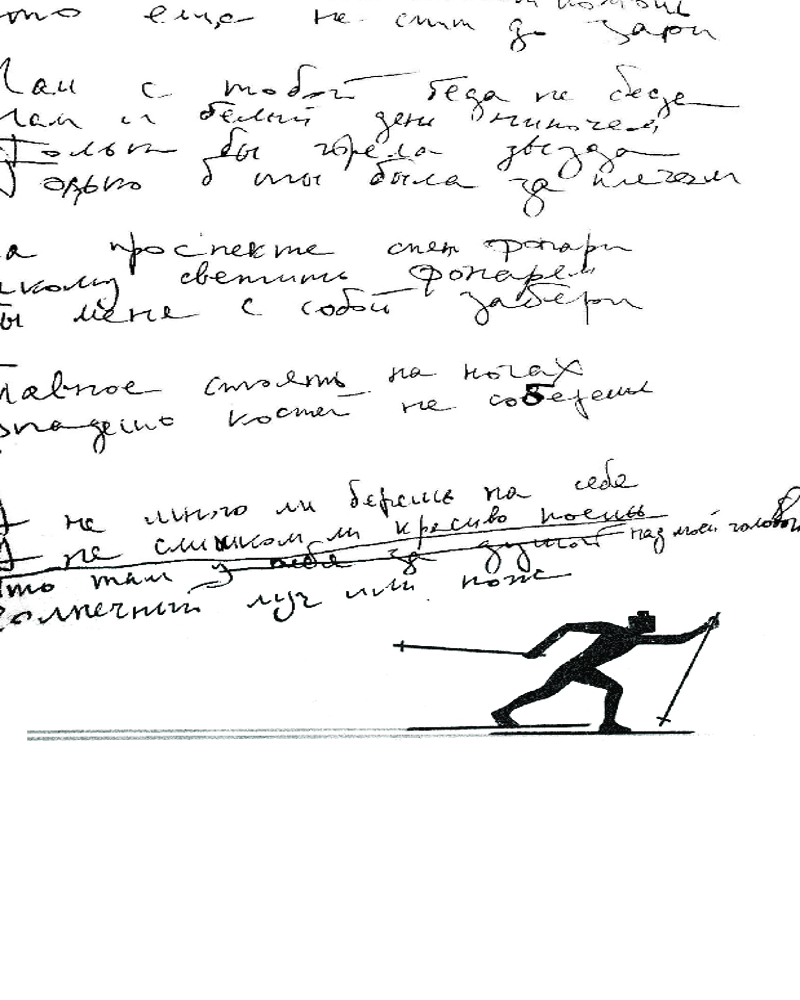 еще не спит до зари
Нам с тобой беда не беде
Нам и белый день нипочем
Только бы горела звезда
Только б ты была за плечом
На проспекте спят фонари
светить фонарем
Ты меня с собой забери
Главное стоять на ногах
костей не соберешь
А не много ли берешь на себе
А не слишком ли красиво поешь
Что там у тебя за душой над моей головой
Солнечный луч или нож